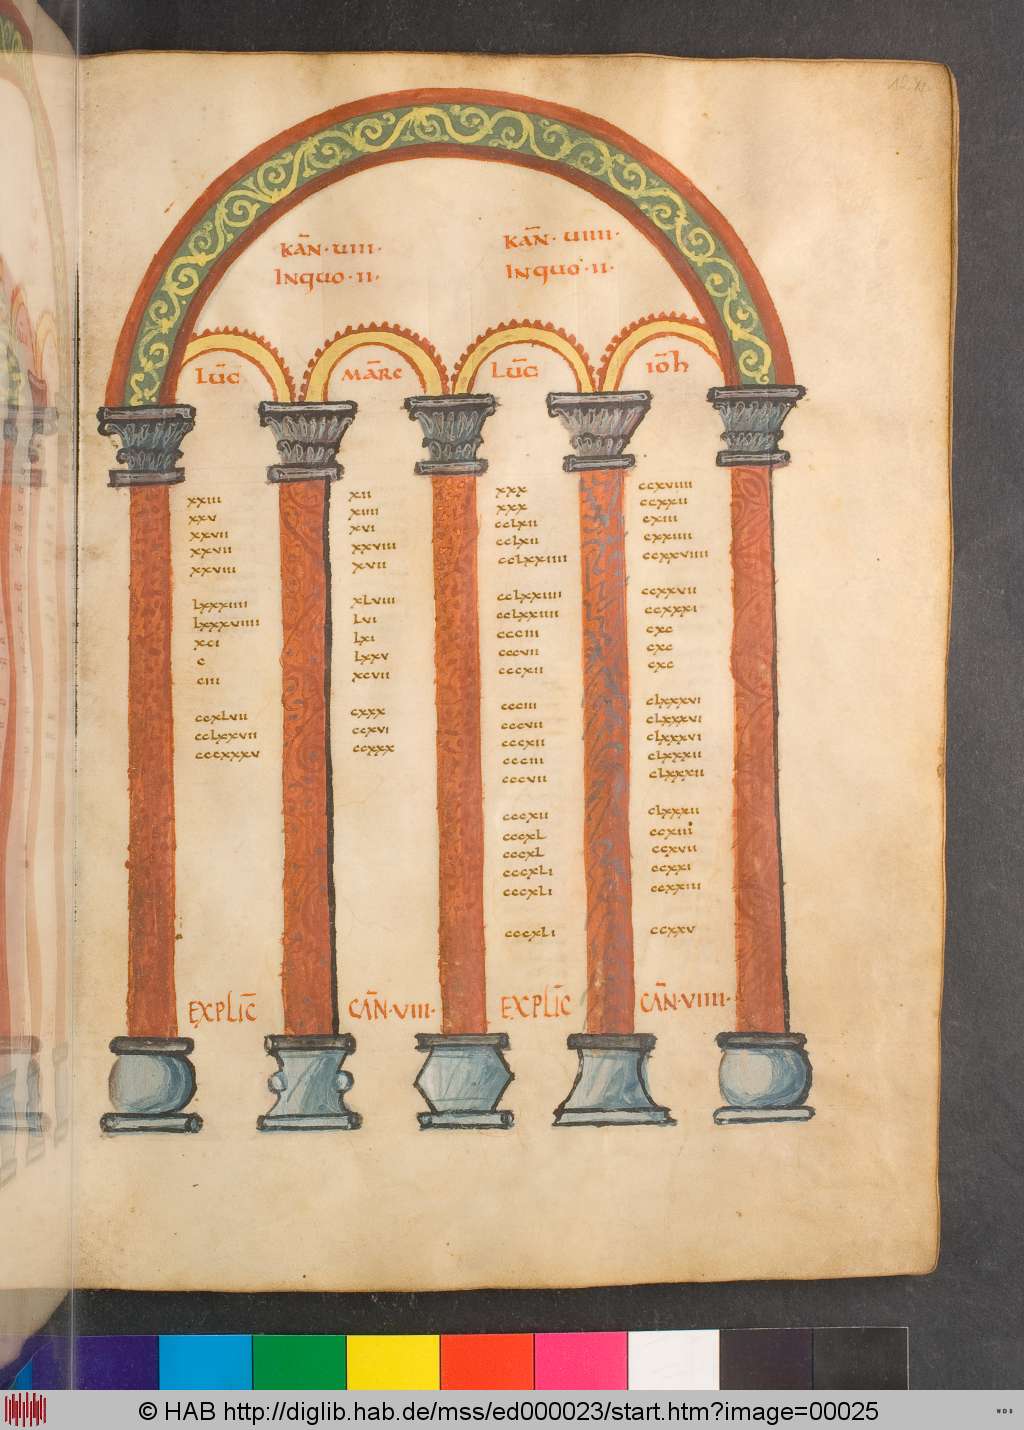 KAN̄·UIII·
INquo·II·
KAN̄·UIIII·
INquo·II·
LUC̄
xxiii
xxv
xxvii
xxvii
xxviii
lxxxiiii
lxxxviiii
xci
c
ciii
ccxlvii
cclxxvii
cccxxxv
EXPLIC̄
MĀRC
xii
xiiii
xvi
xxviii
xvii
xlviii
lvi
lxi
lxxv
xcvii
cxxx
ccxvi
ccxxx
CAN̄·VIII·
LUC̄
xxx
xxx
cclxii
cclxii
cclxxiiii
cclxxiiii
cclxxiiii
ccciii
cccvii
cccxii
ccciii
cccvii
cccxii
ccciii
cccvii
cccxii
cccxl
cccxl
cccxli
cccxli
cccxli
EXPLIC̄
IOH̄
ccxviiii
ccxxii
cxiii
cxxiiii
ccxxviiii
ccxxvii
ccxxxi
cxc
cxc
cxc
clxxxvi
clxxxvi
clxxxvi
clxxxii
clxxxii
clxxxii
ccxiii
ccxvii
ccxxi
ccxxiii
ccxxv
CAN̄·VIIII·
© HAB http://diglib.hab.de/mss/ed000023/start.htm?image=00025
WDB